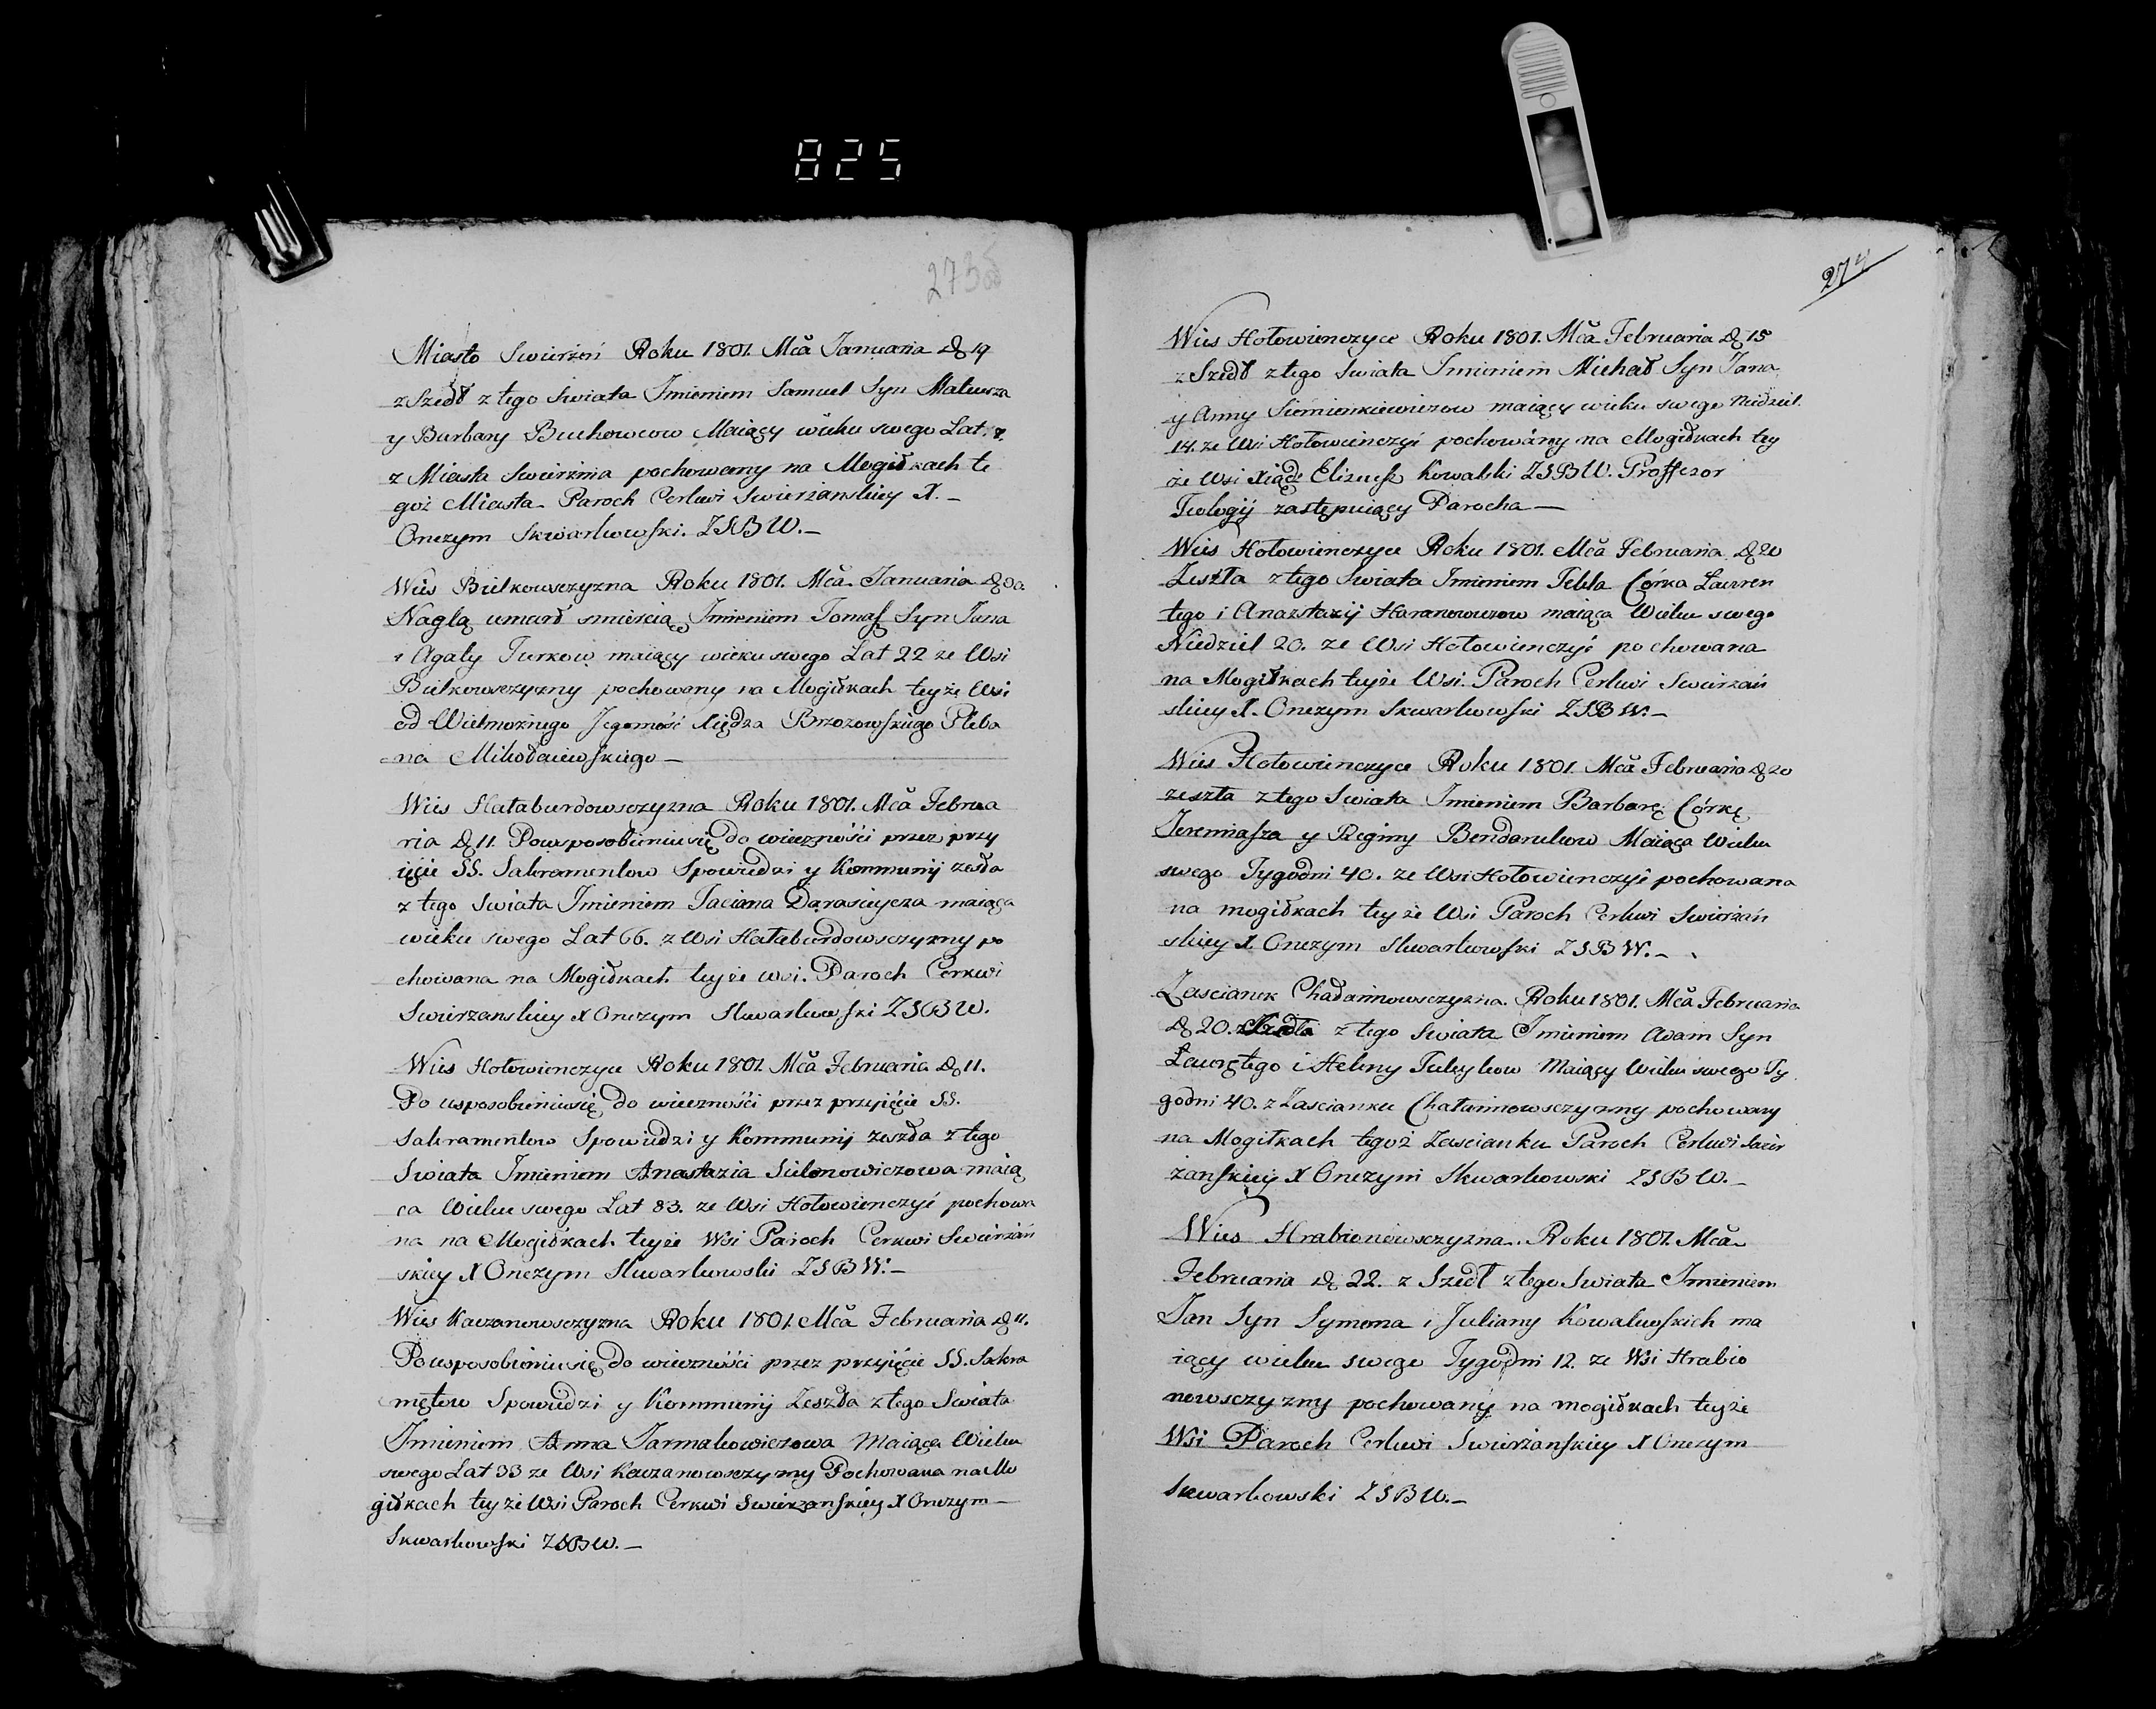 825
273об
Miasto Swierżeń Roku 1801. Mca Januaria D 19
z Szedł z tego Swiata Imieniem Samuel Syn Mateusza
y Barbary Buchowcow Maiący wieku swego Lat
z Miasta Swierznia pochowany na Mogiłkach te
goż Miasta Paroch Cerkwi Swierżanskiey X. —
Onezym Skwarkowski. ZSBW. —
Wies Bielkowsczyzna Roku 1801. Mca Januaria
Naglą umarł smiercią Imieniem Tomasz Syn Jana
i Agaty Turkow maiący wieku swego Lat 22 ze Wsi
Bielkowsczyzny pochowany na Mogiłkach teyże Wsi
od Wielmożnego Jegomość Xiędza Brzozowskiego Pleba
na Mikołaiewskiego —
Wies Hataburdowsczyzna Roku 1801. Mca Februa
ria D 11. Po usposobieniu się do wieczności przez przy
ięcie SS. Sakramentow Spowiedzi y Kommunij zeszła
z tego Swiata Imieniem Taciana Daraszczycza maiąca
wieku swego Lat 66. z Wsi Hataburdowsczyzny po
chowana na Mogiłkach teyże wsi. Paroch Cerkwi
Swierzanskiey X Onezym Skwarkowski ZSBW.
Wies Hołowienczyce Roku 1801. Mca Februaria D 11.
Po usposobieniu się do wieczności przez przyięcie SS.
Sakramentow Spowiedzi y Kommunij zeszła z tego
Swiata Imieniem Anastazia Silonowiczowa maią
ca Wieku swego Lat 83. ze Wsi Hołowienczyć pochowa
na na Mogiłkach teyże Wsi Paroch Cerkwi Swierżań
skiey X Onezym Skwarkowski ZSBW. —
Wies Kaczanowsczyzna Roku 1801. Mca Februaria D 11.
Po usposobieniu się do wieczności przez przyięcie SS. Sakra
mętow Spowiedzi y Kommunij Zeszła z tego Swiata
Imieniem Anna Jarmakowiczowa Maiąca Wieku
swego Lat 33 ze Wsi Kaczanowsczyzny Pochowana na Mo
giłkach teyże Wsi Paroch Cerkwi Swierzanskiey X Onezym —
Skwarkowski ZSBW. —
274
Wies Hołowienczyce Roku 1801. Mca Februaria D 15
z Szedł z tego Swiata Imieniem Michał Syn Jana
y Anny Siemienkiewiczow maiący wieku swego Niedziel.
14. ze Wsi Hołowienczyć pochowany na Mogiłkach tey
że Wsi Xiądz Elizeusz Kowalski ZSBW. Proffezor
Teologij zastępuiący Parocha —
Wies Hołowienczyce Roku 1801. Mca Februaria D 20
Zeszła z tego Swiata Imieniem Tekla Córka Lauren
tego i Anazstazij Haranowiczow maiąca Wieku swego
Niedziel 20. ze Wsi Hołowienczyć pochowana
na Mogiłkach teyże Wsi. Paroch Cerkwi Swierżań
skiey X. Onezym Skwarkowski ZSBW. —
Wies Hołowienczyce Roku 1801. Mca Februaria D 20
zeszła z tego Swiata Imieniem Barbarę Córkę
Jeremiasza y Reginy Bendarukow Maiąca Wieku
swego Tygodni 40. ze Wsi Hołowienczyć pochowana
na mogiłkach teyże Wsi Paroch Cerkwi Swierżań
skiey X Onezym Skwarkowski ZSBW. —
Zascianek Chadarinowsczyzna. Roku 1801. Mca Februaria
D 20. zSzedła z tego Swiata Imieniem Adam Syn
Lawrętego i Heleny Tuleykow Maiący Wieku swego Ty
godni 40. z Zascianku Chatarinowsczyzny pochowany
na Mogiłkach tegoż Zascianku Paroch Cerkwi Swier
żanskiey X Onezym Skwarkowski ZSBW. —
Wies Hrabionowsczyzna. Roku 1801. Mca
Februaria D 22. z Szedł z tego Swiata Imieniem
Jan Syn Symona i Juliany Kowalewskich ma
iący wieku swego Tygodni 12. ze Wsi Hrabio
nowsczyzny pochowany na mogiłkach teyże
Wsi Paroch Cerkwi Swierżanskiey X Onezym
Skwarkowski ZSBW. —